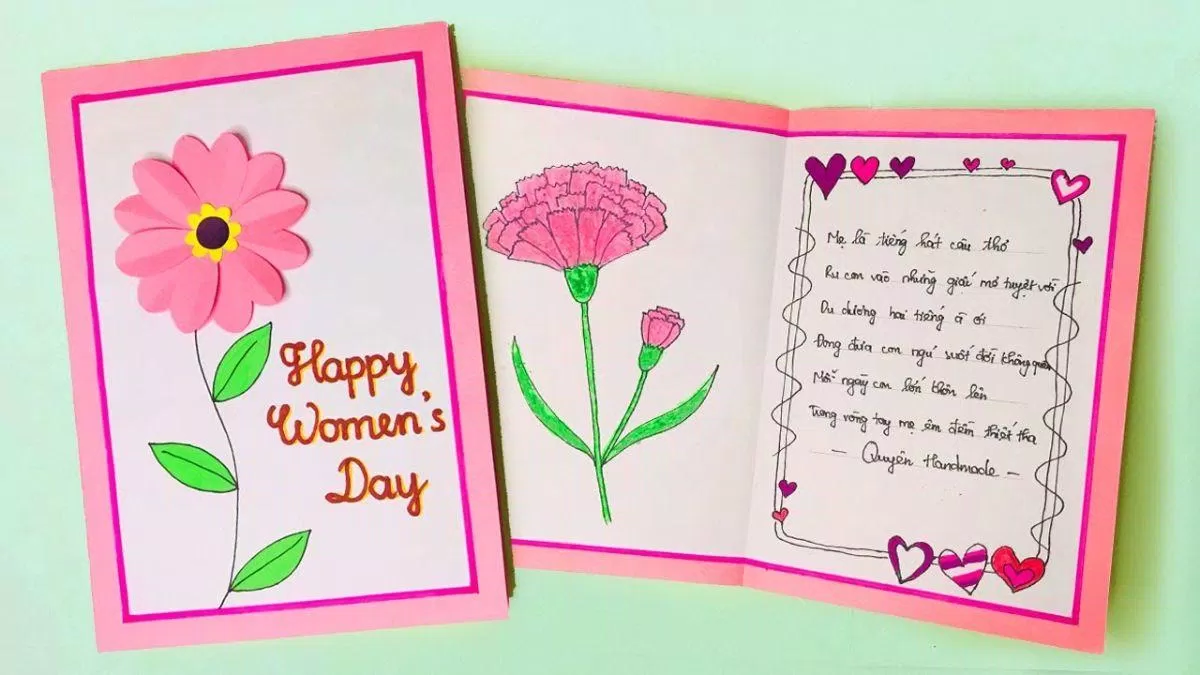 Happy
Women's
Day
Mẹ là tiếng hát câu thơ
Ru con vào những giấc mơ tuyệt vời
Du dương hai tiếng ầ ơi
Đong đưa con ngủ suốt đời không quên
Mỗi ngày con lớn thôn lên
Trong vòng tay mẹ êm đềm thiết tha
- Quyên Handmade -